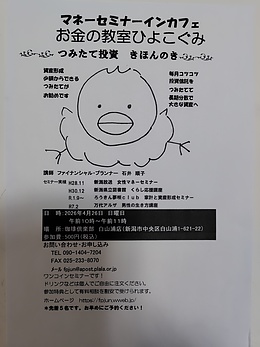 マネーセミナーインカフェ
お金の教室ひよこぐみ
つみたて投資 きほんのき
資産形成
少額からできる
つみたてが
お勧めです
毎月コツコツ
投資信託を
つみたてて
長期分散で
大きな資産へ
講師 ファイナンシャル・プランナー 石井 順子
セミナー実績 H28.11 新潟放送 女性マネーセミナー
H30.12 新潟県立図書館 くらし応援講座
R1.9~ ろうきん夢咲くclub 家計と資産形成セミナー
R7.2 万代アルザ 男性の生き方講座
日 時 2026年4月26日 日曜日
午前10時~午前11時
場 所 珈琲倶楽部 白山浦店(新潟市中央区白山浦1-621-22)
参加費 500円(税込)
お問い合わせ・お申し込み
TEL 090-1404-7204
FAX 025-233-8070
e-mail fpjun@apost.plala.or.jp
ワンコインセミナーです!
ドリンクなどは個人でご自由に注文ください。
参加特典として有料相談を割安で受けられます。
ホームページ
*先着5名です。お早めにご予約ください!